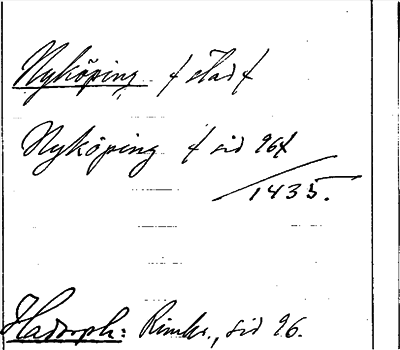 Nyköping / stad /
Nyköping / sid 96 /
1435.
Hadorph: Rimkr., sid 96.